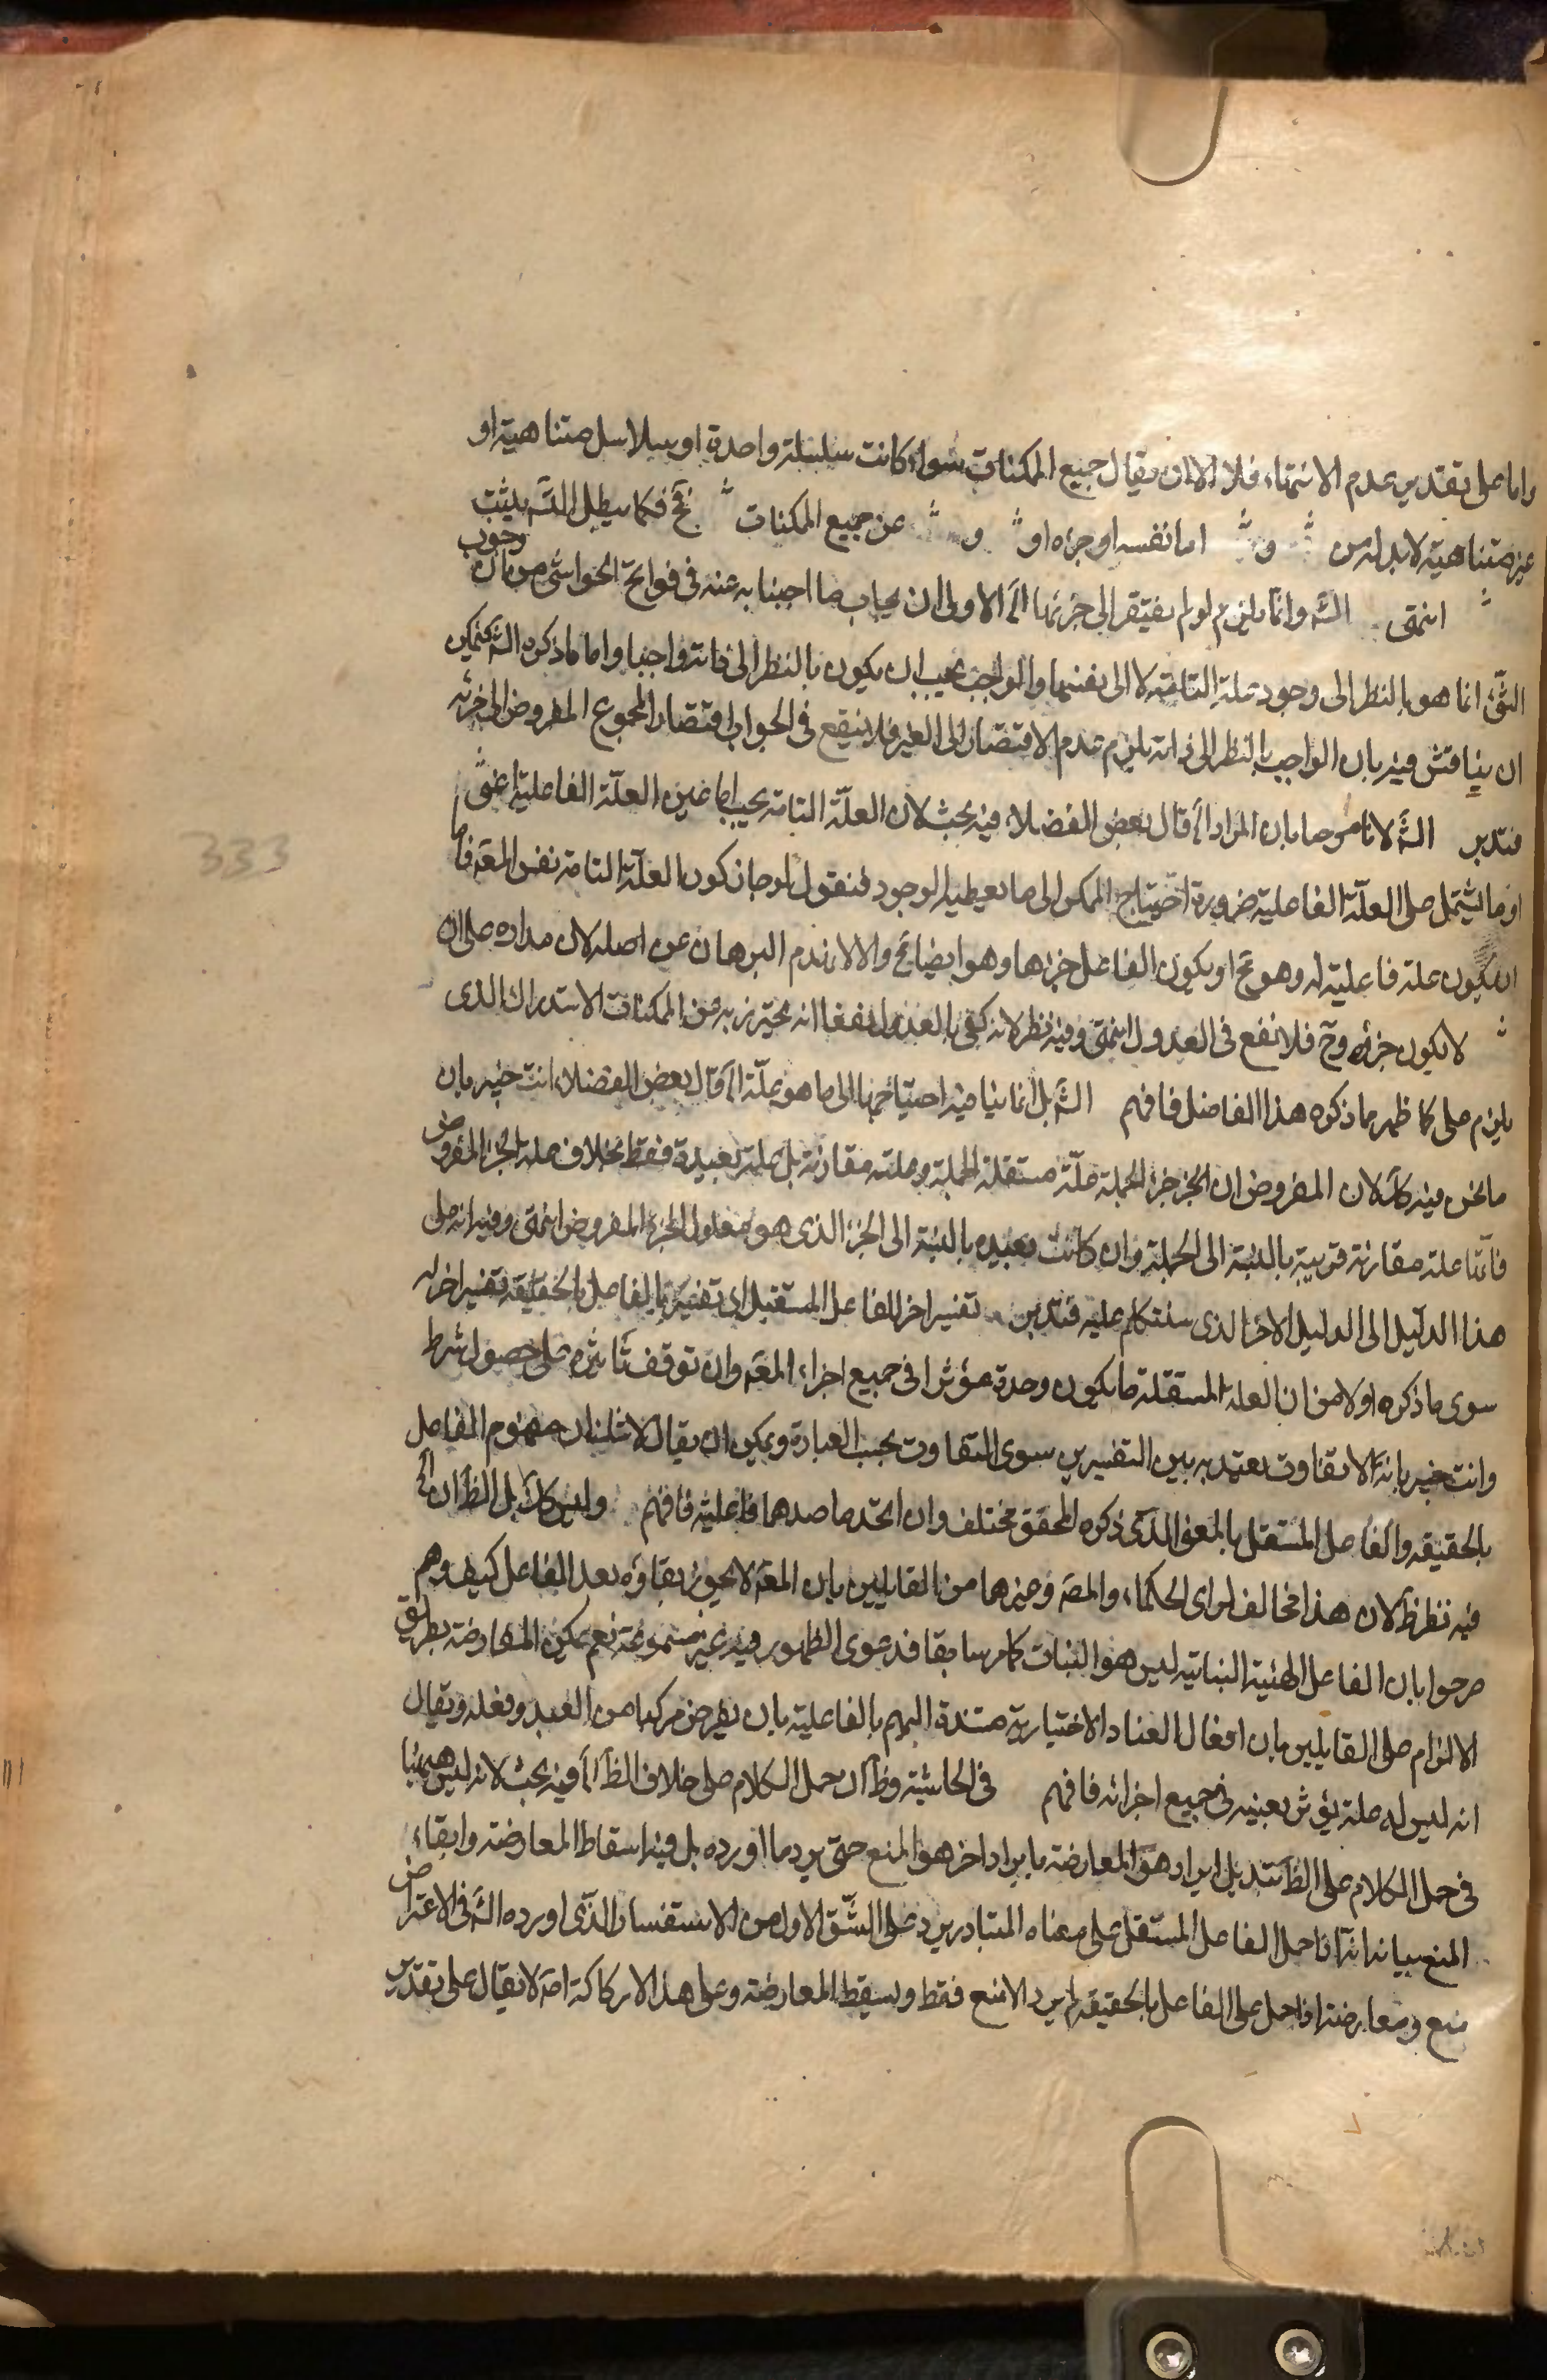 واما على تقدير عدم الانتهاء فلا الا ان يقال جميع الممكنات سواء كانت سلسلة واحدة او سلاسل متناهية او
غير متناهية لا بد له من و اما نفسه او جزءه او و عن جميع الممكنات فح فكما يبطل التسـ يثبت
انتهى الشـ وانما يلزم لو لم يفتقر الى جزئها الـخ الاولى ان يجاب بما اجبنا به عنه في فواتح الحواشي من ان وجوب
الشئ انما هو بالنظر الى وجود علته التامة لا الى نفسها والواجب يجب ان يكون بالنظر الى ذاته واجبا واما ما ذكره الشـ فيمكن
ان يناقش فيه بان الواجب بالنظر الى ذاته يلزم عدم الافتقار الى الغير فلا ينفع في الجواب افتقار المجموع المفروض الى جزئه
فتدبر الشـ لانا مرحبا بان المراد الـخ قال بعض الفضلاء فيه بحث لان العلة التامة يجب اما عين العلة الفاعلية
او ما يشتمل على العلة الفاعلية ضرورة احتياج الممكن الى ما يعطيه الوجود فنقول لو جاز كون العلة التامة نفس المعـ فاما
ان يكون علة فاعلية له وهو مح او يكون الفاعل جزءها وهو ايضا مح والا لانهدم البرهان عن اصله لان مداره على ان
لا يكون جزؤه وح فلا نفع في العدول انتهى وفيه نظر لانه كفى بالعدول نفعا انه يحترز به من الممكنات الاستدراك الذي
يلزم على كما ظهر مما ذكره هذا الفاضل فافهم الشـ بل انما ينافيه احتياجها الى ما هو علة الـخ قال بعض الفضلاء انت خبير بان
ما نحن فيه كك لان المفروض ان الجزء جزء الجملة علة مستقلة الجملة وعلته مقارنة بل علة بعيدة فقط بخلاف علة الجزء المفروض
فانها علة مقارنة قريبة بالنسبة الى الجملة وان كانت بعيدة بالنسبة الى الجزء الذي هو معلول الجزء المفروض انتهى وفيه انه على
هذا الدليل الى الدليل الاخر الذي سنتكلم عليه فتدبر تفسير اخر للفاعل المستقل اى تفسيره بالفاعل بالحقيقة تفسير اخر له
سوى ما ذكره اولا من ان العلة المستقلة ما يكون وحده مؤثرا في جميع اجزاء المعـ وان توقف تاثيره على حصول شرط
وانت خبير بانه لا تفاوت يعتد به بين التفسيرين سوى التفاوت بحسب العبارة ويمكن ان يقال لا شك ان مفهوم الفاعل
بالحقيقة والفاعل المستقل بالمعنى الذي ذكره المحقق مختلف وان اتحد ما صدهما فاعليته فافهم وليس كك بل الظ ان الـخ
فيه نظر ظ لان هذا مخالف لراى الحكماء والمصـ وغيرهما من القايلين بان المعـ لا يجوز بقاؤه بعد الفاعل كيف وهم
صرحوا بان الفاعل الهيئة البنائية ليس هو البناء كما مر سابقا فدعوى الظهور فيه غير مسموعة نعم يمكن المعارضة بطريق
الالزام على القايلين بان افعال العباد الاختيارية مستندة اليهم بالفاعلية بان يفرض مركبا من العبد وفعله ويقال
انه ليس له علة يؤثر بعينه في جميع اجزائه فافهم في الحاشية وظ ان حمل الكلام على خلاف الظ الـخ فيه بحث لانه ليس ههنا
في حمل الكلام على الظ تبديل ايراد هو المعارضة بايراد اخر هو المنع حتى يرد ما اورده بل فيه اسقاط المعارضة وابقاء
المنع بيانه انه اذا حمل الفاعل المستقل على معناه المتبادر يرد على الشق الاول من الاستفسار الذي اورده الشـ في الاعتراض
منع ومعارضة اذا حمل على الفاعل بالحقيقة لم يرد الا منع فقط ويسقط المعارضة وعلى هذا لا ركاكة اصـ لا يقال على تقدير
333